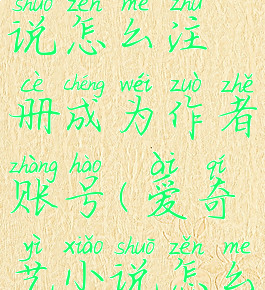 shuō zěn me zhù
说怎么注
cè chéng wéi zuò zhě
册成为作者
zhàng hào ài qí
账号(爱奇
yì xiǎo shuō zěn me
艺小说怎么